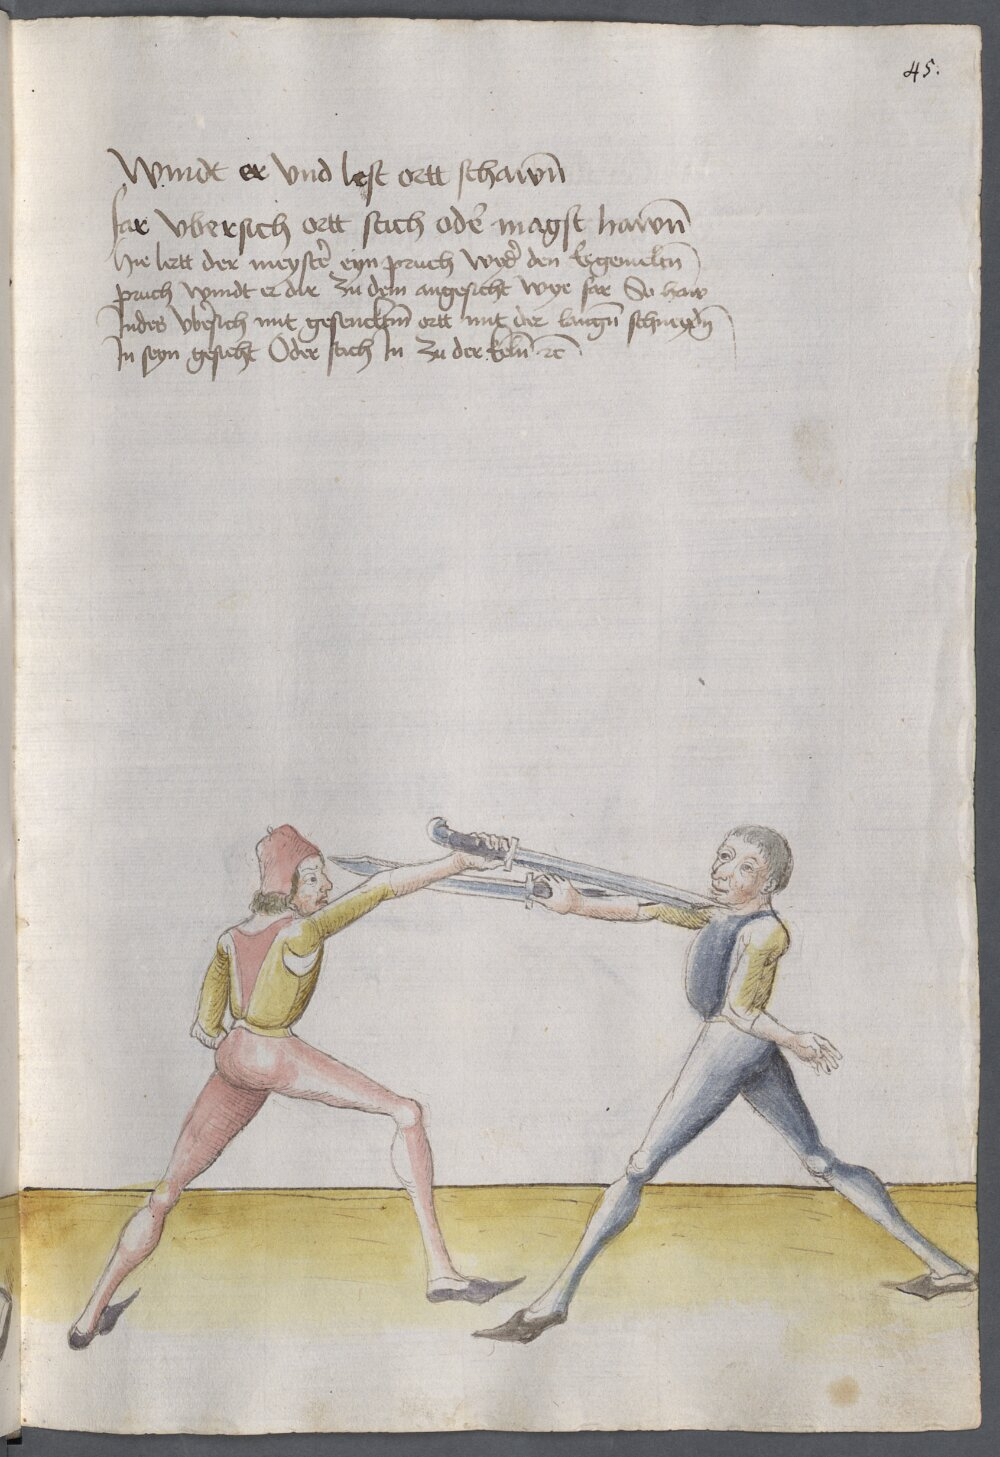 45.
Windt er vnd lest ortt schawn̄
far vbersich ortt stich odē magst hawn̄
Hie lertt der meystē eyn pruch wyd̄ den
pruch windt er dir zu dem angesicht wye far So haw
Indes vbersich mit gesencktm̄ ortt mit der langn̄ schneydn̄
In seyn gesicht Oder stich In zu der keln̄ rc̄